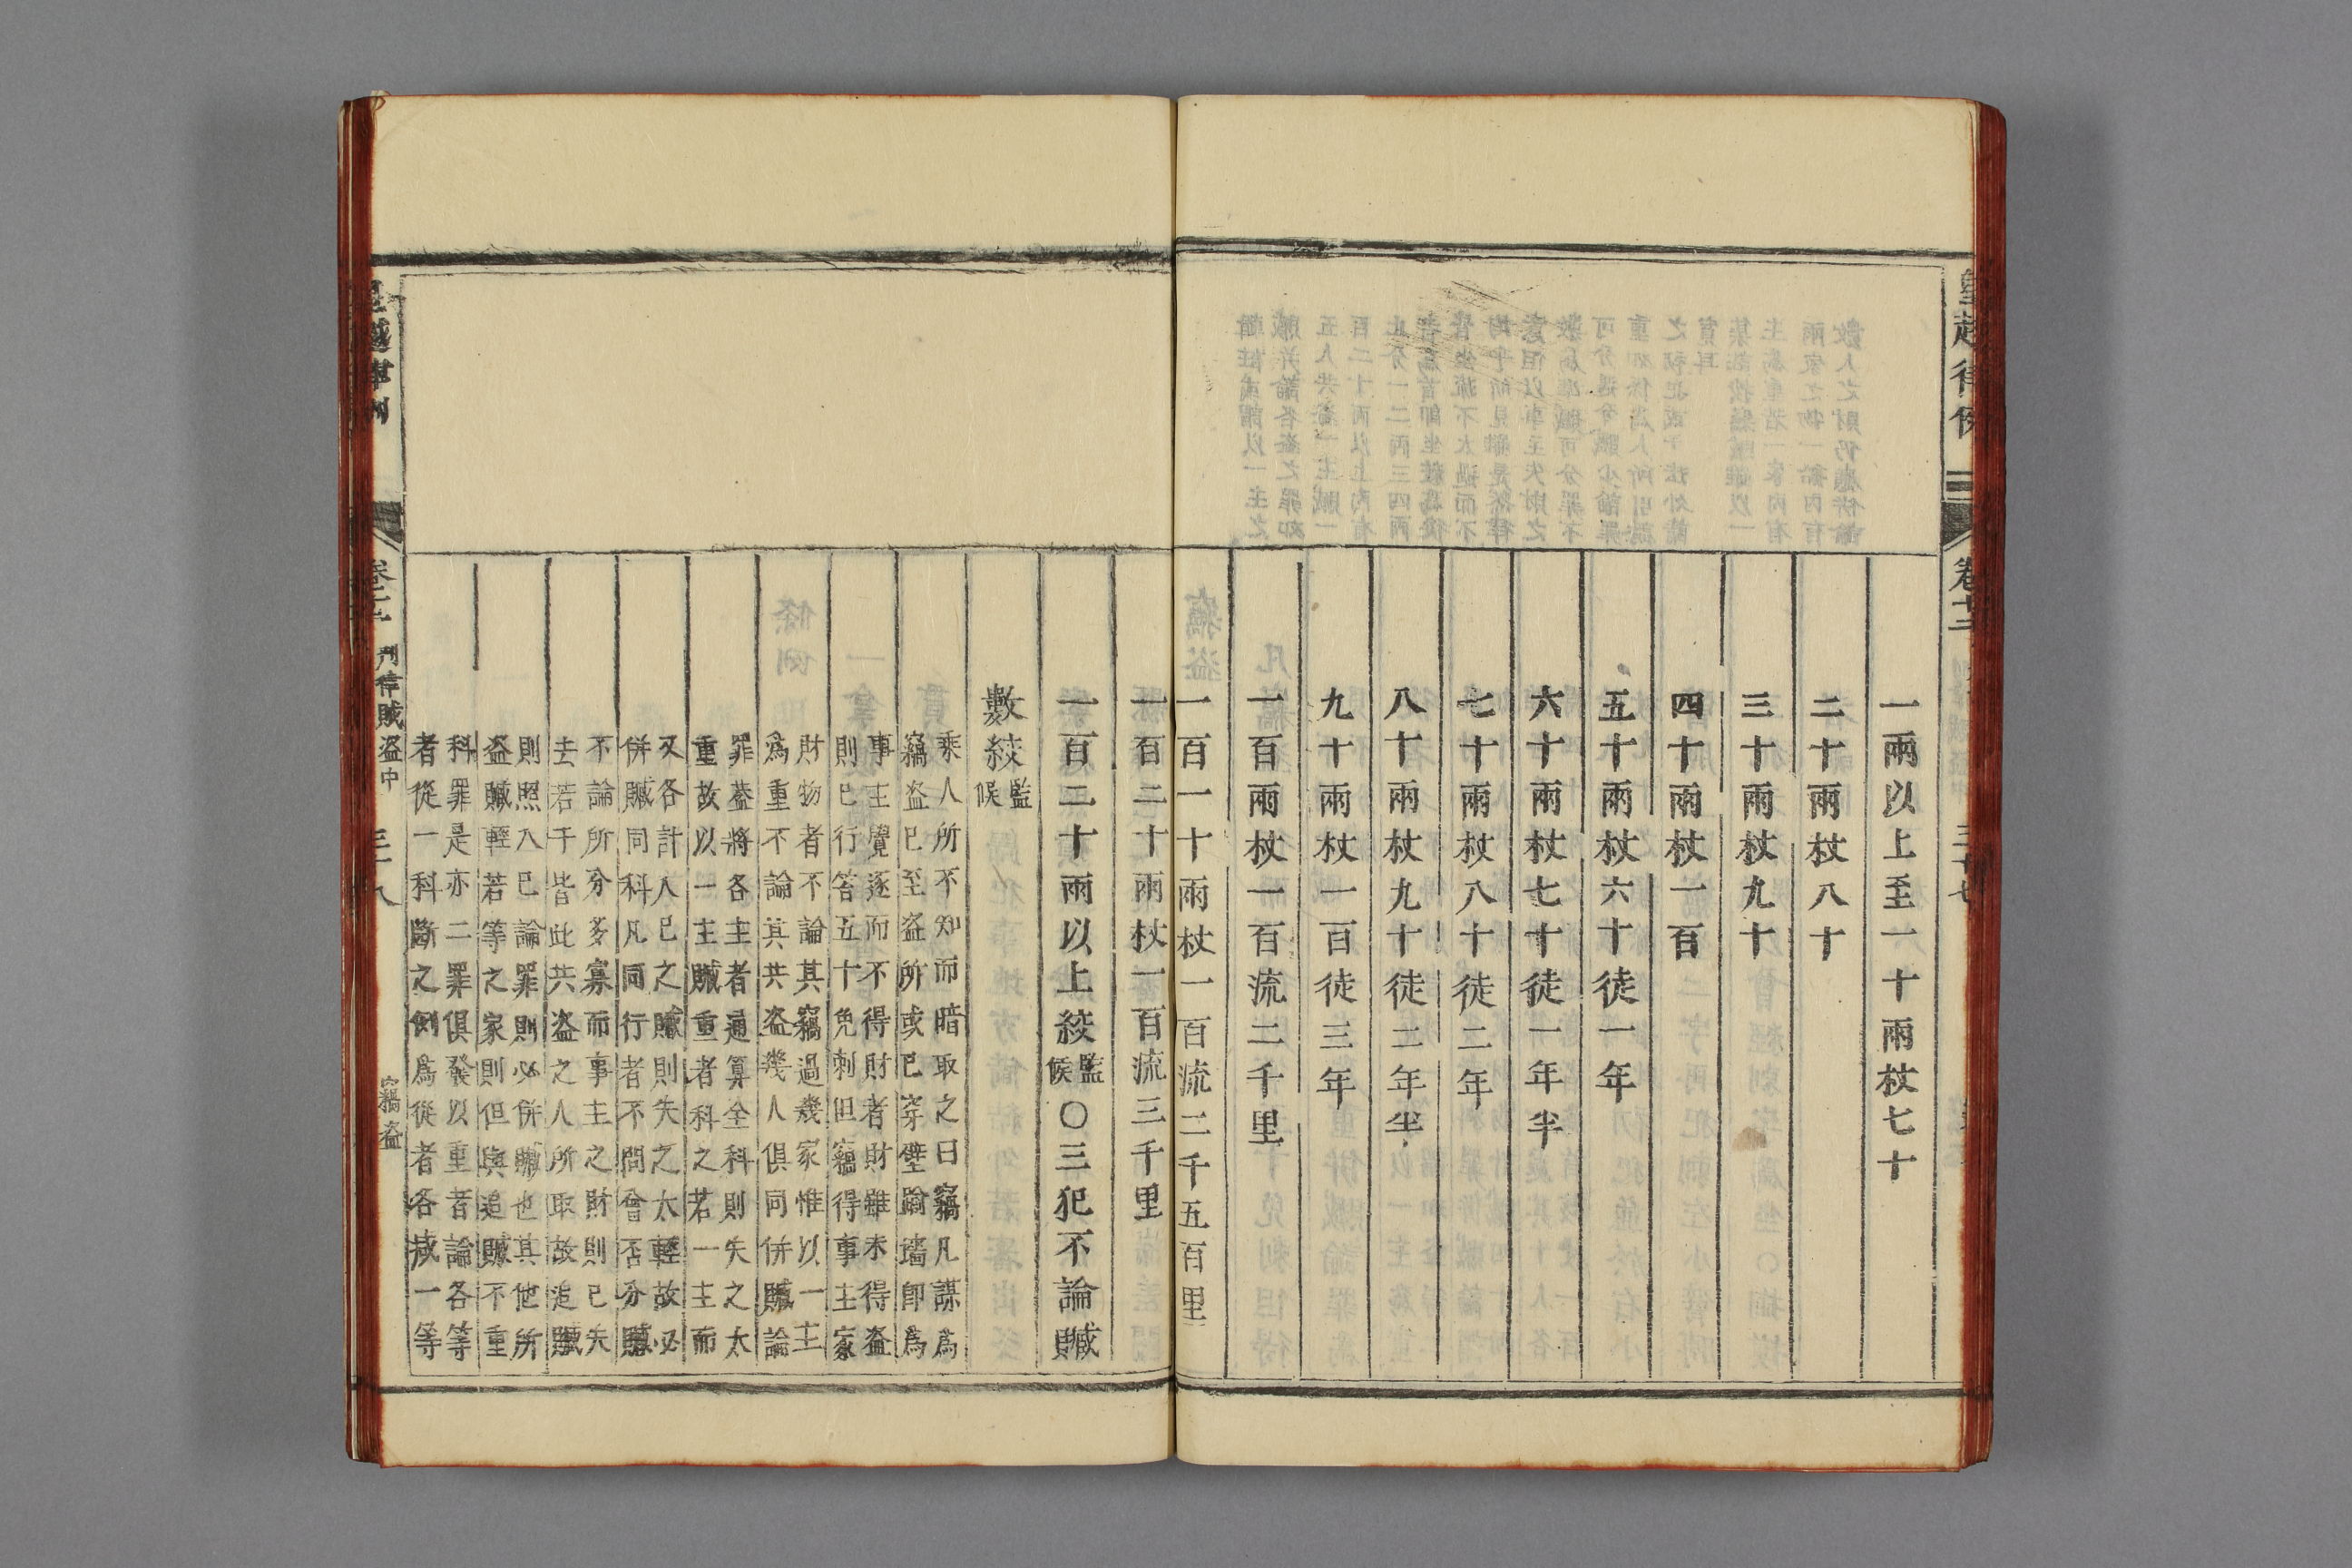 一兩以上至一十兩杖七十
二十兩杖八十
三十兩杖九十
四十兩杖一百
五十兩杖六十徒一年
六十兩杖七十徒一年半
七十兩杖八十徒二年
八十兩杖九十徒二年半
九十兩杖一百徒三年
一百兩杖一百流二千里
一百一十兩杖一百流二千五百里
一百二十兩杖一百流三千里
一百二十兩以上絞監候○三犯不論贓
數絞監候
乘人所不知而暗取之曰竊凡謀爲
竊盗已至盗所或已穿壁踰墻卽爲
事主覺逐而不得財者財雖未得盗
則已行笞五十免刺但竊得事主家
財物者不論其竊過幾家惟以一主
爲重不論其共盗幾人俱同併贓論
罪葢將各主者通算全科則失之太
重故以一主贓重者科之若一主而
又各計人已之贓則失之太輕故必
併贓同科凡同行者不問曾否分贓
不論所分多寡而事主之財則已失
去若干皆此共盗之人所取故追贓
則照入已論罪則必併贓也其他所
盗贓輕若等之家則但與追贓不重
科罪是亦二罪俱發以重者論各等
者從一科斷之例爲從者各减一等
卷十二
三十七
卷十二 刑律賊盗中 三十八 竊盗